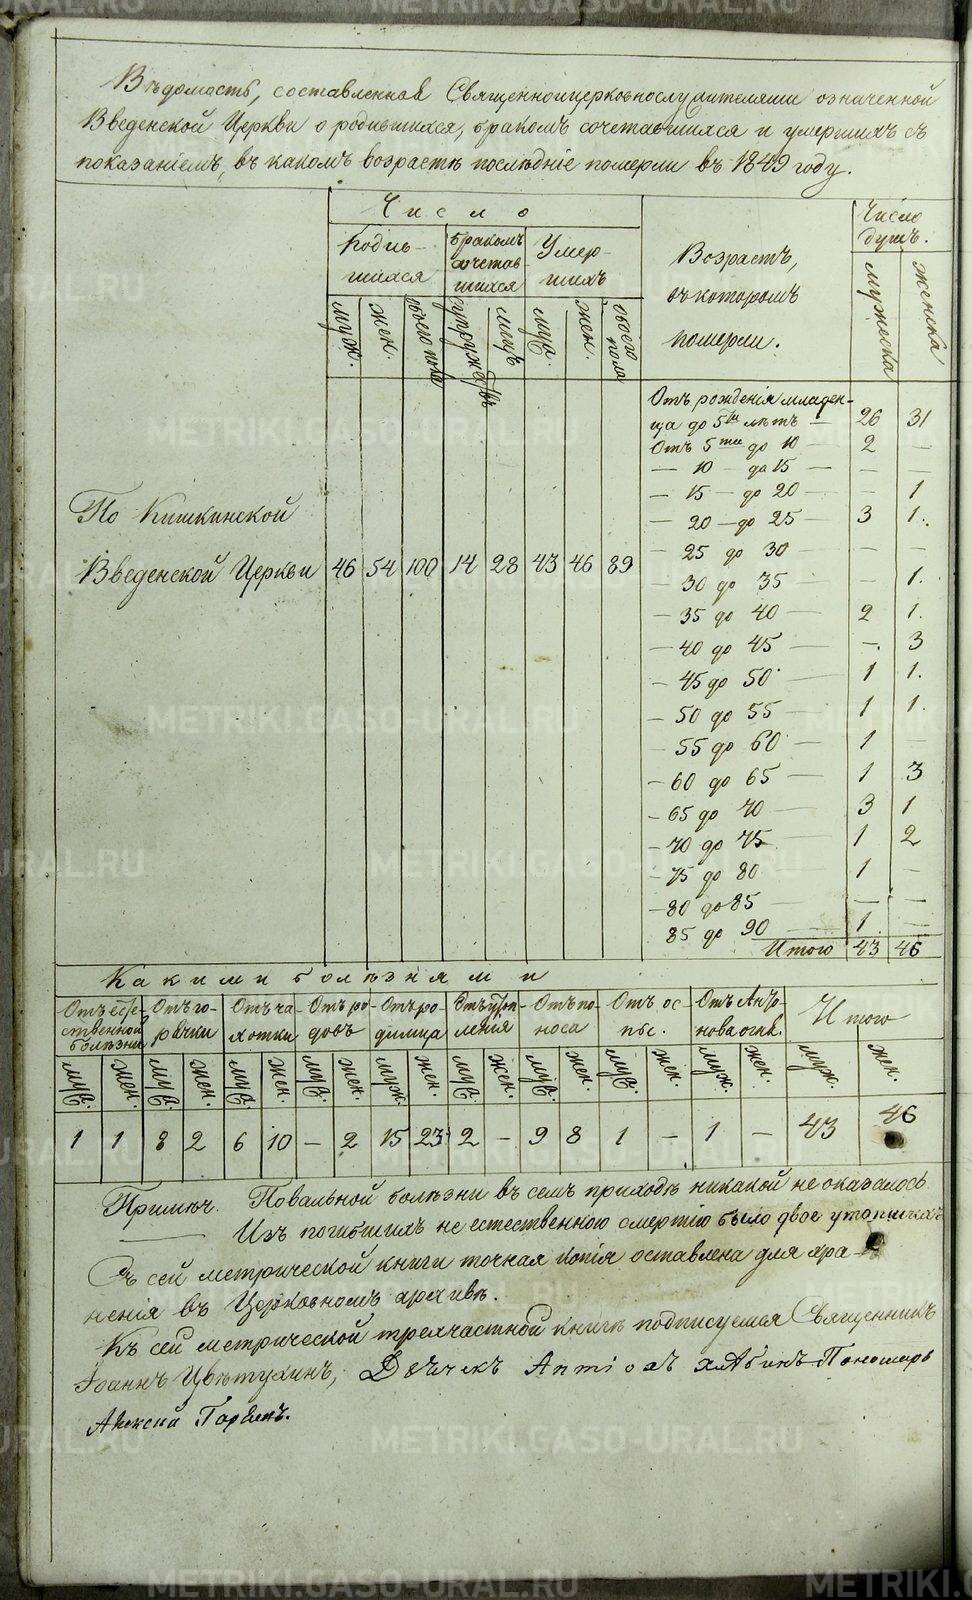 Вѣдомость, составленная Священноицерковнослужителями означенной
Введенской Церкви о родившихся, бракомъ сочетавшихся и умершихъ съ
показаніемъ, въ какомъ возрастѣ послѣдніе померли въ 1849 году.
Число
Родив-
шихся
Бракомъ
сочетав-
шихся
Умер-
шихъ
Возрастъ,
въ которомъ
померли.
Число
душъ.
муж. жен. обоего пола супружествъ лицъ муж. жен. обоего пола мужеска женска
Отъ рожденія младен-
ца до 5ти лѣтъ — 26 31
Отъ 5ти до 10 — 2 —
— 10 — до 15 — — —
— 15 — до 20 — — 1
— 20 — до 25 — 3 1.
— 25 до 30 — —
— 30 до 35 — 1.
— 35 до 40 — 2 1.
— 40 до 45 — —. 3
— 45 до 50 — 1 1.
— 50 до 55 — 1 1.
— 55 до 60 — 1 —
— 60 до 65 — 1 3
— 65 до 70 — 3 1
— 70 до 75 — 1 2
— 75 до 80 — 1 —
— 80 до 85 — — —
85 до 90 — 1 —
Итого 43 46
По Кишкинской
Введенской Церкви 46 54 100 14 28 43 46 89
Какими болѣзнями
Отъ есте-
ственной
болѣзни
Отъ го-
рячки
Отъ ча-
хотки
Отъ ро-
довъ
Отъ ро-
димца
Отъ утоп-
ленія
Отъ по-
носа
Отъ ос-
пы.
Отъ Анто-
нова огня.
Итого
муж. жен. муж. жен. муж. жен. муж. жен. муж. жен. муж. жен. муж. жен. муж. жен. муж. жен. муж. жен.
1 1 8 2 6 10 — 2 15 23 2 — 9 8 1 — 1 — 43 46
Примѣч. Повальной болѣзни въ семъ приходѣ никакой не оказалось
Изъ погибшихъ не естественною смертію было двое утопшихъ
Съ сей метрической книги точная копія оставлена для хра-
ненія въ Церковномъ архивѣ.
Къ сей метрической трехчастной книгѣ подписуемся Священникъ
Іоаннъ Цвѣтухинъ, Дьячекъ Антіохъ Хлабинъ Пономарь
Алексій
METRIKI.GASO-URAL.RU